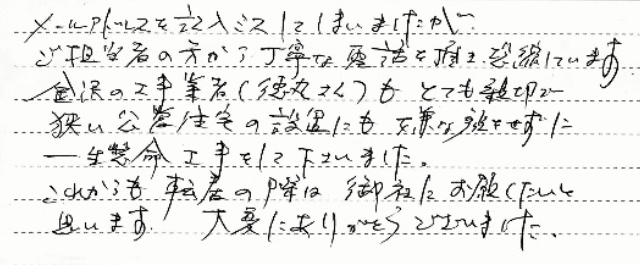 メールアドレスを記入ミスしてしまいましたが
ご担当者の方から丁寧な電話を頂き恐縮しています
金沢の工事業者(徳丸さん)もとても親切で
狭い公営住宅の設置にも嫌な顔をせずに
一生懸命工事をして下さいました。
これからも転居の際は御社にお願いしたいと
思います 大変にありがとうございました。